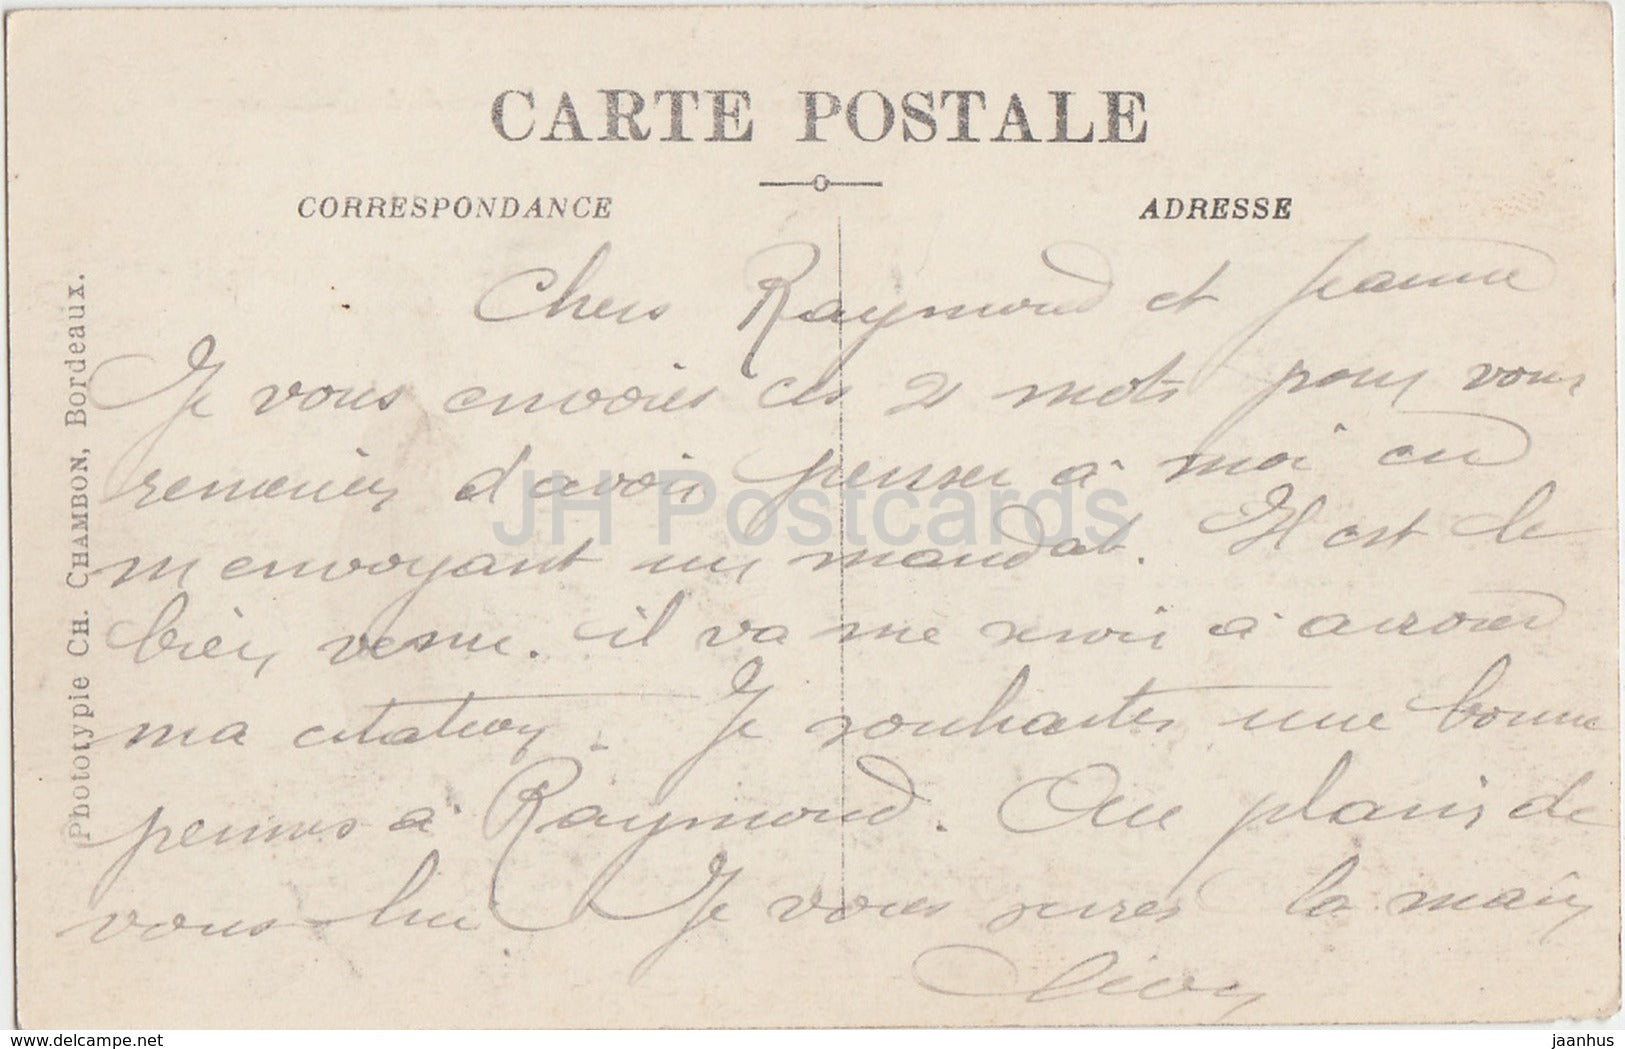 CARTE POSTALE
CORRESPONDANCE
ADRESSE
Phototypie CH. CHAMBON, Bordeaux.
Chers Raymond et Jeanne
Je vous envoies ces 2 mots pour vous
remerier d'avoir penser à moi en
m envoyant un mandat. Il est le
bien venu. il va me servir à arroser
ma citation. Je souhaites une bonne
permis à Raymond. Au plaisir de
vous lire Je vous serres la main
JH Postcards
delcampe.net
jaanhus